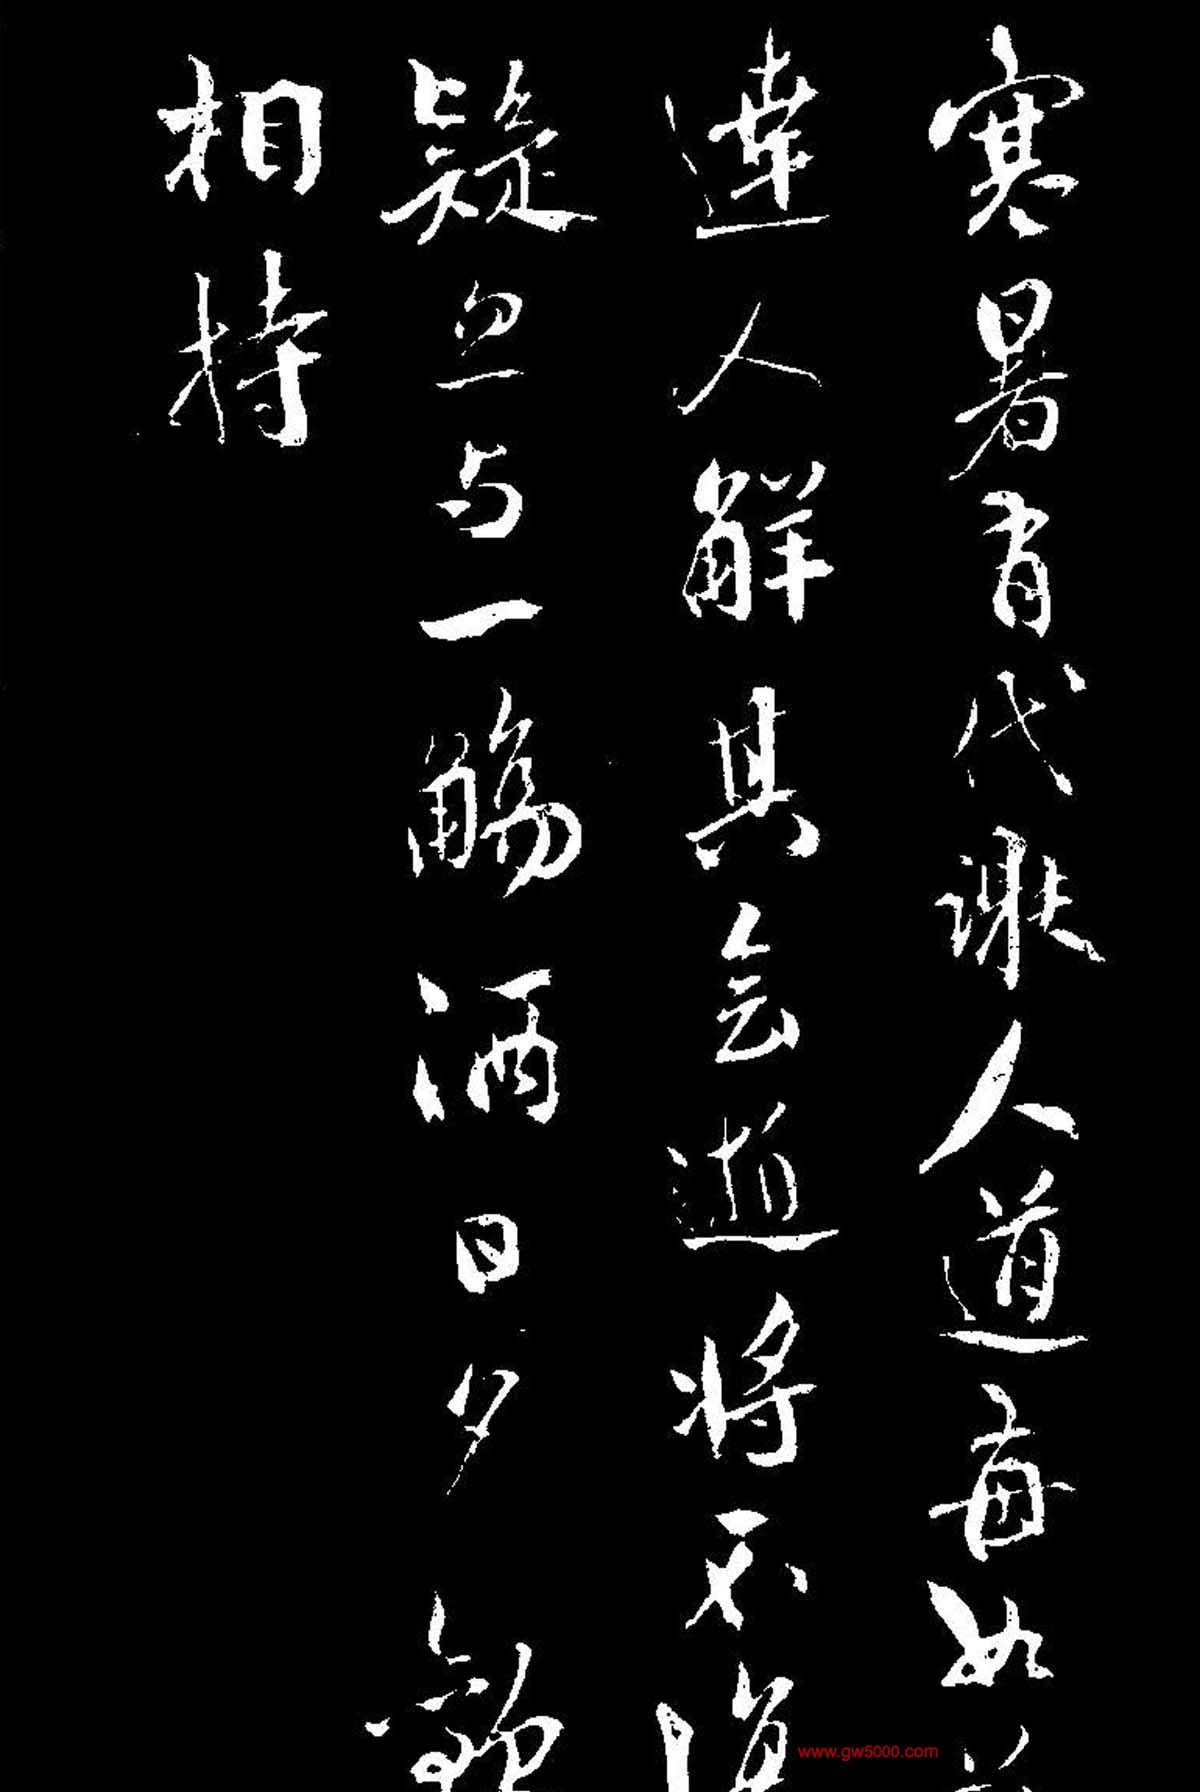 寒暑有代謝人道每如
達人解其会逝將不復
疑忽与一觴酒日夕歡
相持
www.gw5000.com